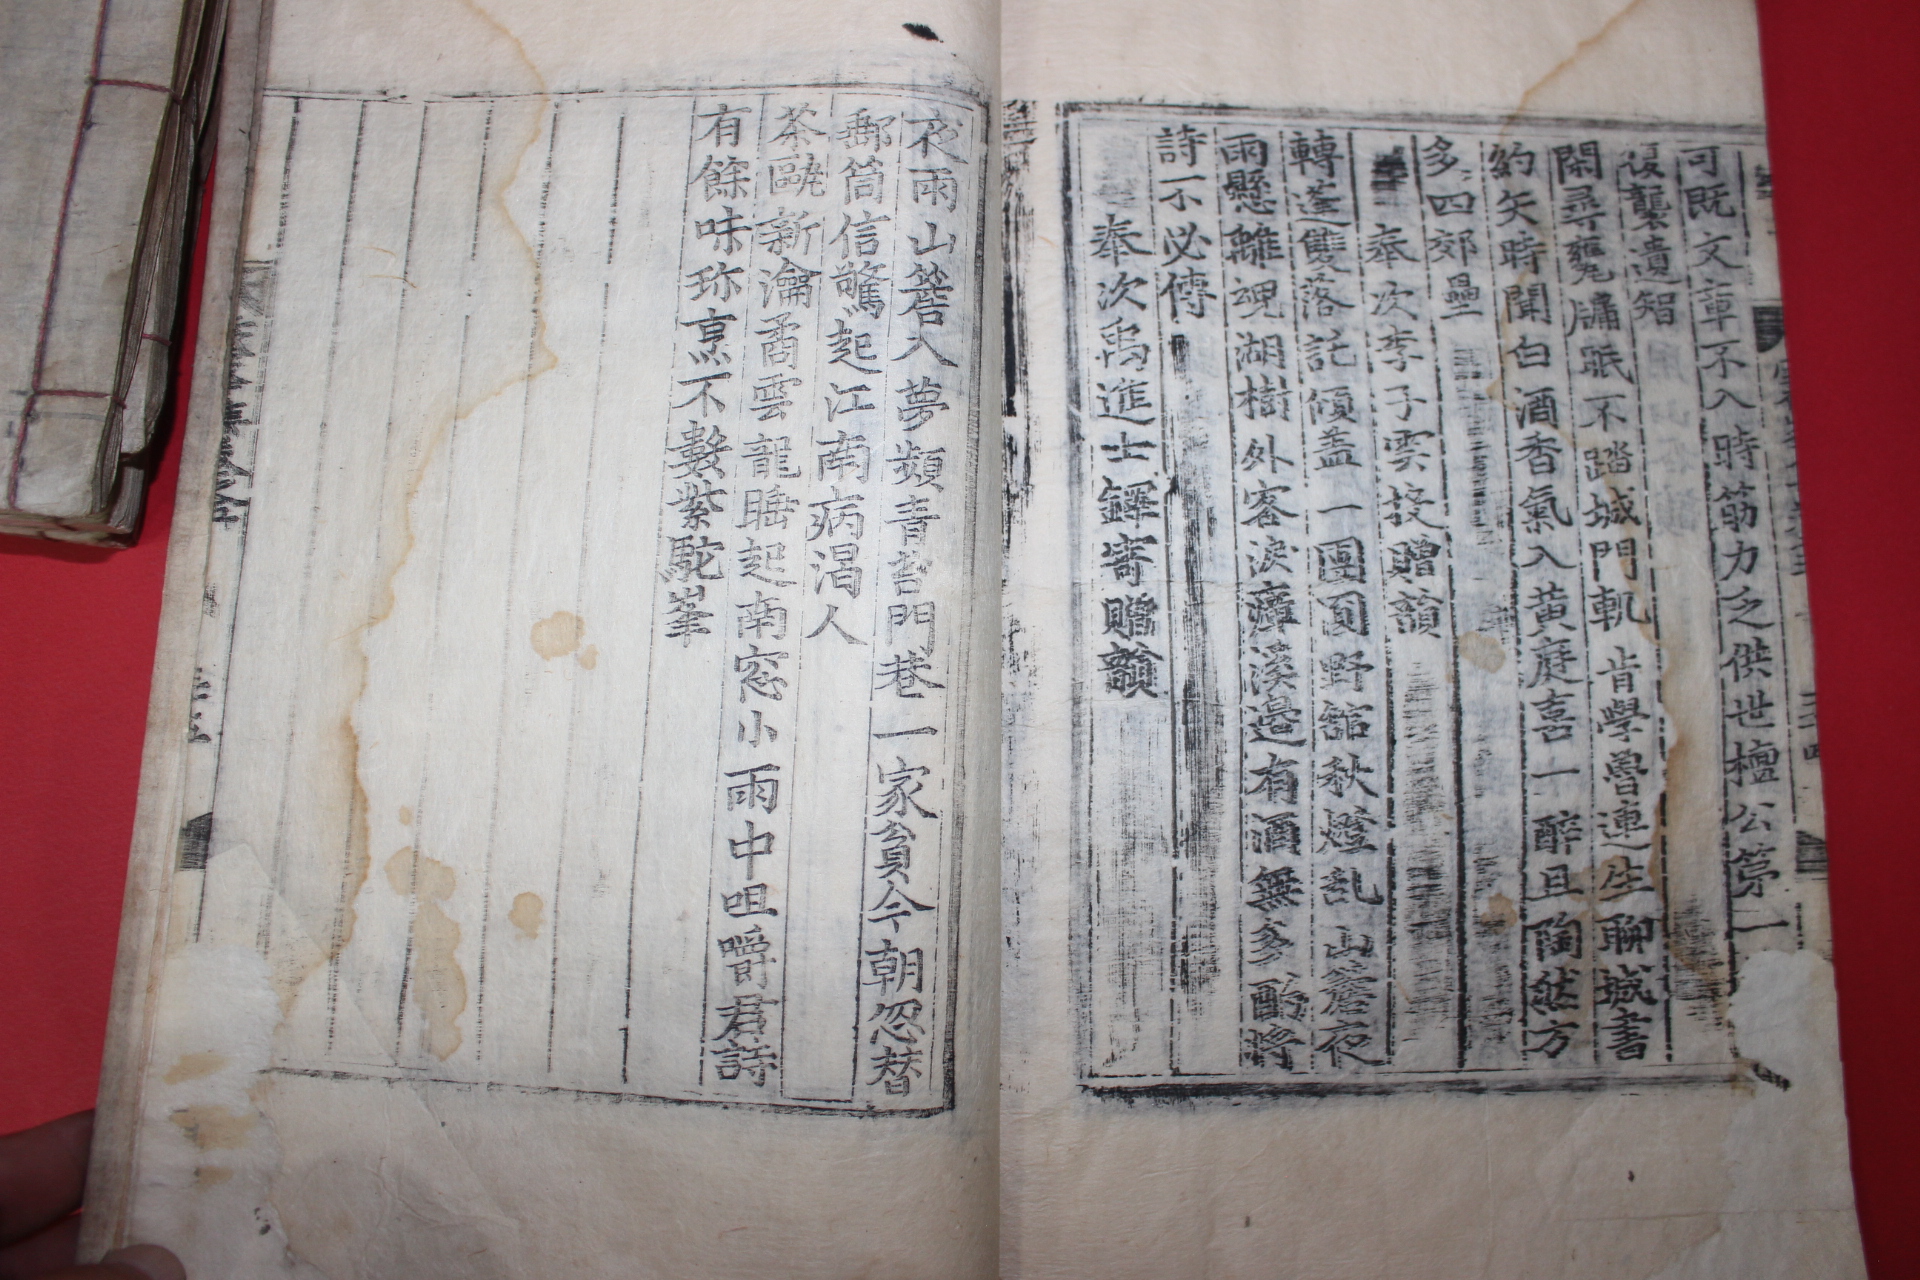 可既文章不入時筋力乏供世檀公第一
復襲遺智
閑尋甕牖眠不踏城門軌肯學魯連生聊城書
約矢時聞白酒香氣入黃庭喜一醉且陶然方
多四郊壘
奉次李子雲投贈韻
轉蓬雙落託傾盖一團圓野舘秋燈乱山簷夜
雨懸離魂湖樹外客淚瘴溪邊有酒無多酌將
詩不必傳
奉次禹進士鐸寄贈韻
夜雨山簷入夢頻青苔門巷一家貧今朝忽替
郵筒信驚起江南病渴人
茶甌新瀹矞雲龍睡起南窓小雨中咀嚼君詩
有餘味珎烹不數紫駝峯